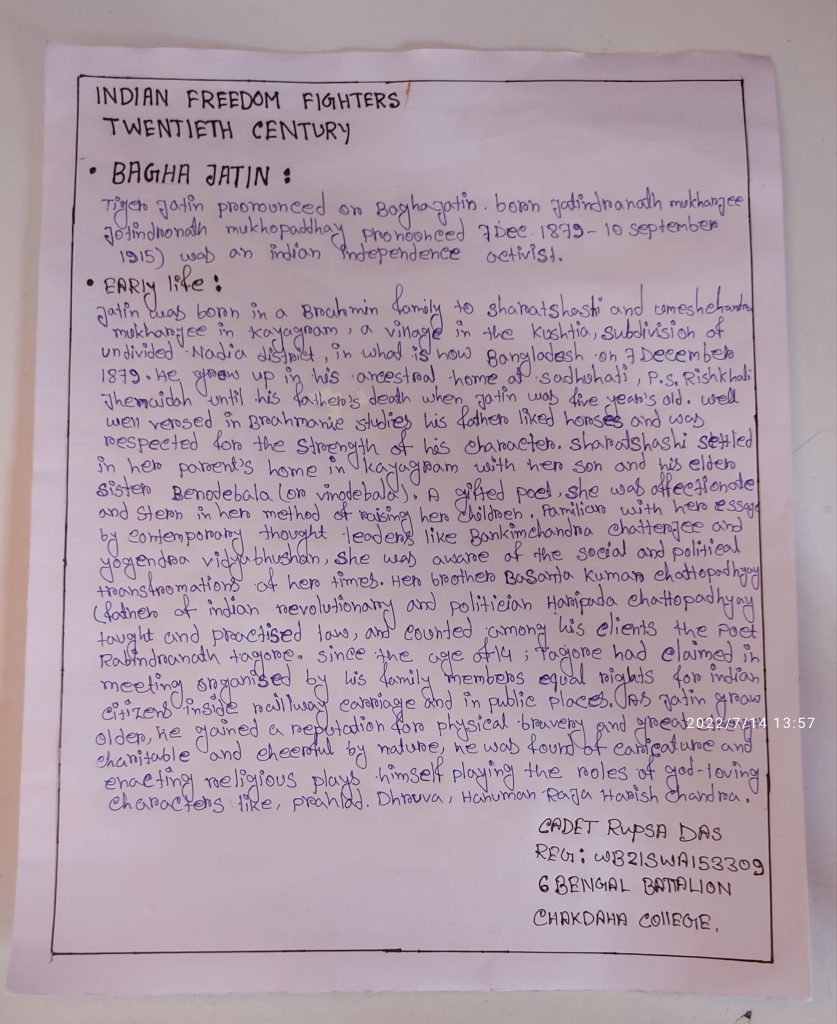 INDIAN FREEDOM FIGHTERS
TWENTIETH CENTURY
• BAGHA JATIN :
Tiger Jatin pronounced or Baghajatin. born Jatindranath mukharjee
Jotindronath mukhopaddhay pronounced 7 Dec. 1879 - 10 september
1915) was an indian independence activist.
• EARLY life :
Jatin was born in a Brahmin family to sharatshashi and umeshchandra
mukharjee in kayagram, a village in the Kushtia, subdivision of
undivided Nadia district, in what is now Bangladesh on 7 December
1879. He grow up in his ancestral home at sadhuhati, P.S. Rishkhali
Jhenaidah until his father's death when Jatin was five year's old. well
well versed in Brahmanic studies his father liked horses and was
respected for the strength of his character. sharatshashi settled
in her parent's home in kayagram with her son and his elder
sister Benodebala (or vinodebala). A gifted poet, she was affectionate
and stern in her method of raising her children. Familiar with her essays
by contemporary thought leaders like Bankimchandra chatterjee and
yogendra vidyabhushan, she was aware of the social and political
transfromations of her times. Her brother Basanta kumar chattopadhyay
(father of indian revolutionary and politician Haripada chattopadhyay
taught and practised law, and counted among his clients the poet
Rabindranath tagore. since the age of 14 ; Tagore had claimed in
meeting organised by his family members equal rights for indian
citizens inside railway carriage and in public places. As Jatin grow
older, he gained a reputation for physical bravery and great
charitable and cheerful by nature, he was found of caricature and
enacting religious plays himself playing the roles of god-loving
characters like, prahlad. Dhruva, Hanuman Raja Harish Chandra.
2022/7/14 13:57
CADET RUPSA DAS
REG : WB21SWA153309
6 BENGAL BATTALION
CHAKDAHA COllEGE.